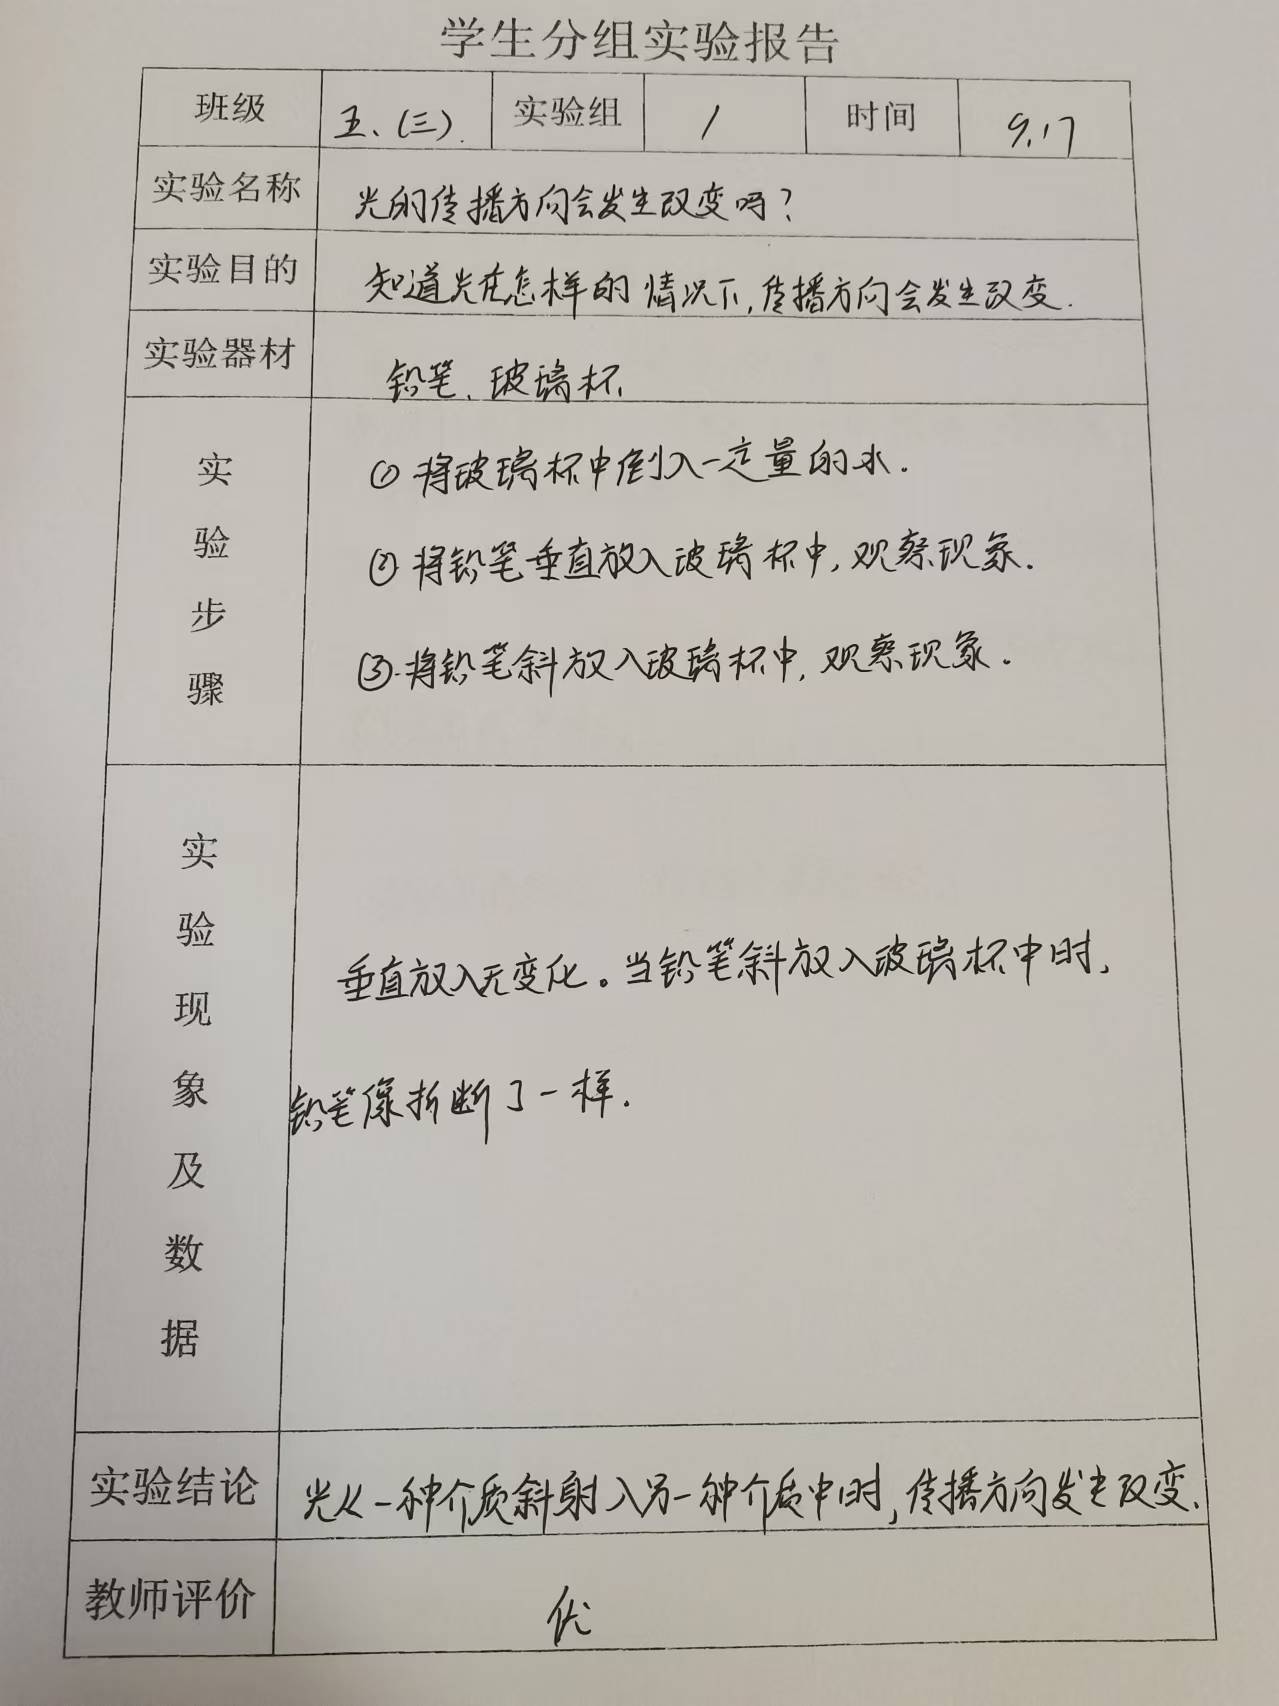 学生分组实验报告
班级 五、(三). 实验组 1 时间 9.17
实验名称 光的传播方向会发生改变吗?
实验目的 知道光在怎样的情况下,传播方向会发生改变.
实验器材 铅笔、玻璃杯.
实验步骤
① 将玻璃杯中倒入一定量的水.
② 将铅笔垂直放入玻璃杯中,观察现象.
③.将铅笔斜放入玻璃杯中,观察现象.
实验现象及数据
垂直放入无变化。当铅笔斜放入玻璃杯中时,
铅笔像折断了一样.
实验结论 光从一种介质斜射入另一种介质中时,传播方向发生改变.
教师评价 优